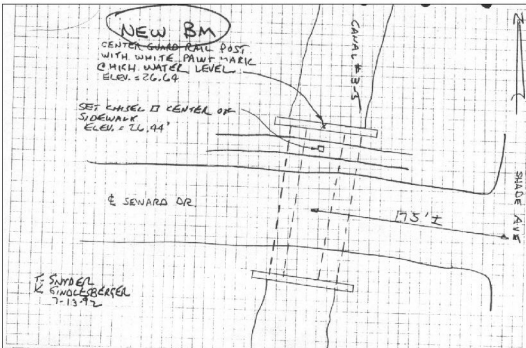 NEW BM
CENTER GUARD RAIL POST
WITH WHITE PAINT MARK
@ HIGH WATER LEVEL
ELEV. = 26.64
SET CHISEL □ CENTER OF
SIDEWALK
ELEV. = 26.44'
CANAL #3-5
SHADE AVE
℄ SEWARD DR.
175' ±
T. SNYDER
K. GINDLESBERGER
7-13-92